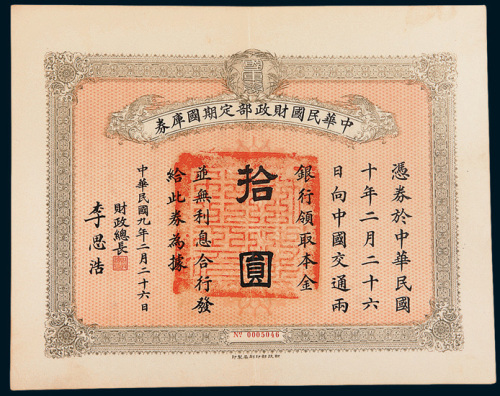 中華民國財政部定期國庫券
憑券於中華民國
十年二月二十六
日向中國交通兩
銀行領取本金
拾圓
並無利息合行發
給此券為據
中華民國九年二月二十六日
財政總長
李思浩
Nº 0005046
財政部印刷局製印